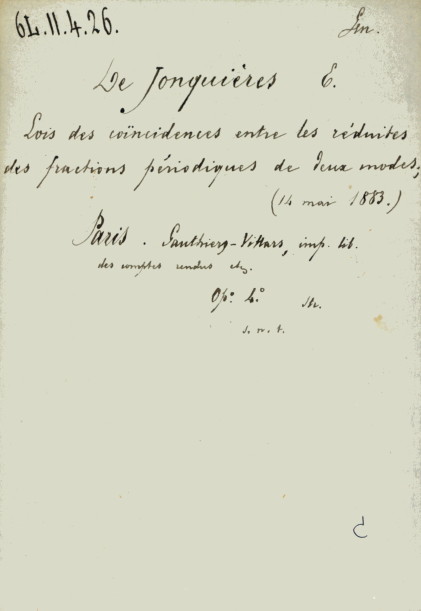 6L.II.4.26.
Gen.
De Jonquières E.
Lois des coïncidences entre les réduites
des fractions périodiques de deux modes;
(14 mai 1883.)
Paris. Gauthiers-Villars, imp. lib.
des comptes rendus etc.
Op.° 4.°
s. n. t.